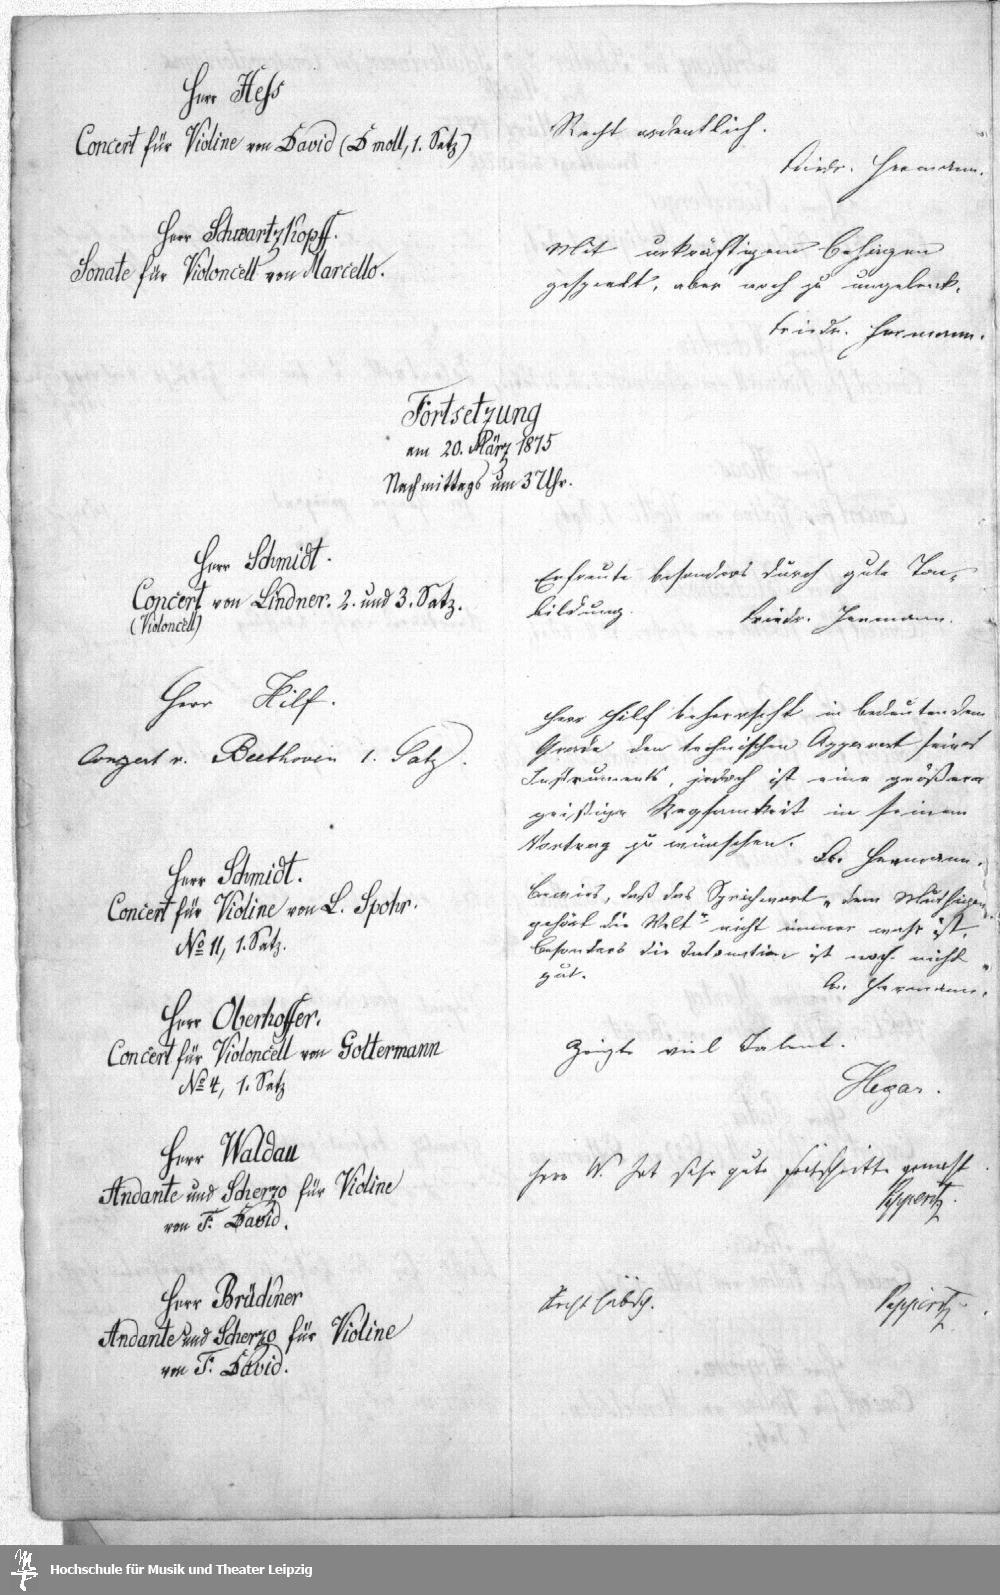 Herr Hess
Concert für Violine von David (D moll, 1. Satz)
Recht ordentlich.
Friedr. Hermann.
Herr Schwartzkopff.
Sonate für Violoncell von Marcello.
Mit urkräftigem Behagen
gespielt, aber noch zu ungelenk.
Friedr. Hermann.
Fortsetzung
am 20. März 1875
Nachmittags um 3 Uhr.
Herr Schmidt.
Concert von Lindner. 2. und 3. Satz.
(Violoncell)
Erfreute besonders durch gute Ton-
bildung.
Friedr. Hermann.
Herr Hilf.
Conzert v. Beethoven 1. Satz.
Herr Hilf beherrscht in bedeutendem
Grade den technischen Apparat seines
Instruments, jedoch ist eine größere
geistige Regsamkeit in seinem
Vortrag zu wünschen.
Fr. Hermann.
Herr Schmidt.
Concert für Violine von L. Spohr.
No 11, 1. Satz.
Bewies, daß das Sprichwort „dem Muthigen
gehört die Welt" nicht immer wahr ist,
besonders die Intonation ist noch nicht
gut.
Fr. Hermann.
Herr Oberhoffer.
Concert für Violoncell von Goltermann
No 4, 1. Satz
Zeigte viel Talent.
Hegar.
Herr Waldau
Andante und Scherzo für Violine
von F. David.
Herr W. hat sehr gute Fortschritte gemacht.
Papperitz.
Herr Brückner
Andante und Scherzo für Violine
von F. David.
Recht hübsch.
Papperitz.
Hochschule für Musik und Theater Leipzig